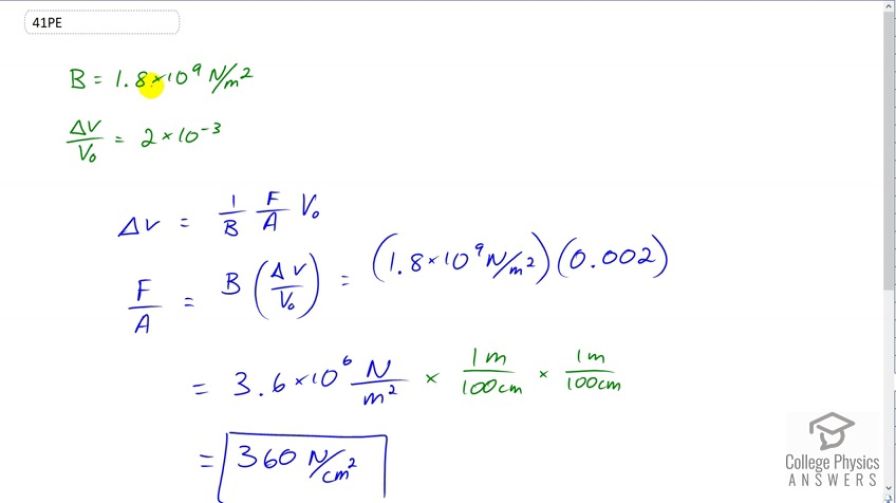 41PE
B = 1.8×10⁹ N/m²
ΔV/V₀ = 2×10⁻³
ΔV = 1/B F/A V₀
F/A = B (ΔV/V₀) = (1.8×10⁹ N/m²)(0.002)
= 3.6×10⁶ N/m² × 1m/100cm × 1m/100cm
= 360 N/cm²
College Physics
ANSWERS